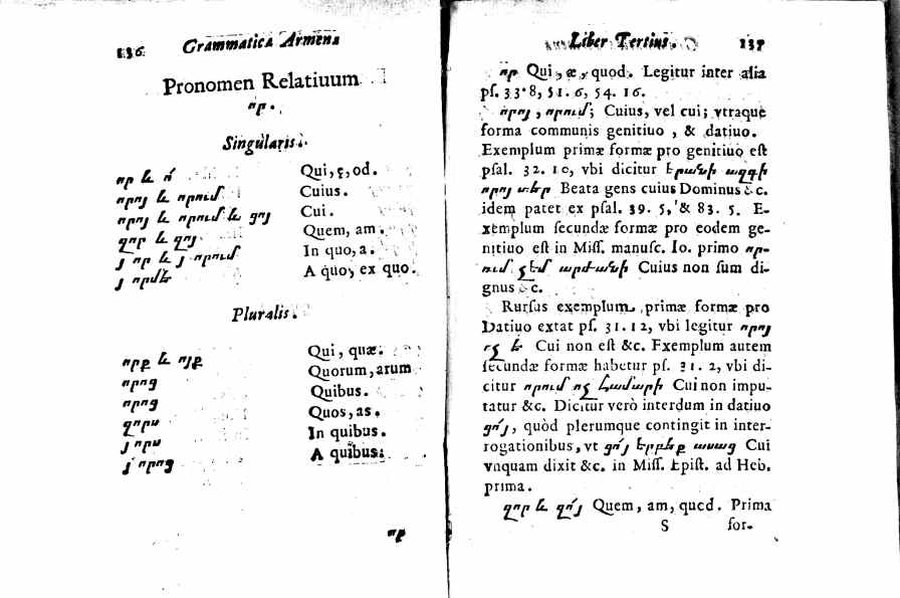 136 Grammatica Armena
Pronomen Relatiuum
որ.
Singularis.
որ և ո՛ Qui, ę, od.
որոյ և որում Cuius.
որոյ և որում և ոյր Cui.
զոր և զոյ Quem, am.
յ որ և յ որում In quo, a.
յ որմէ A quo, ex quo.
Pluralis.
որք և ոյք Qui, quæ.
որոց Quorum, arum
որոց Quibus.
զորս Quos, as.
յ որս In quibus.
յ որոց A quibus.
որ
Liber Tertius. 137
որ Qui, æ, quod. Legitur inter alia
ps. 33. 8, 51. 6, 54. 16.
որոյ, որում; Cuius, vel cui; vtraque
forma communis genitiuo, & datiuo.
Exemplum primæ formæ pro genitiuo eſt
pſal. 32. 10, vbi dicitur երանի ազգի
որոյ տէր Beata gens cuius Dominus &c.
idem patet ex pſal. 39. 5, & 83. 5. E-
xemplum ſecundæ formæ pro eodem ge-
nitiuo eſt in Miſſ. manuſc. Io. primo որ-
ում չեմ արժանի Cuius non ſum di-
gnus &c.
Rurſus exemplum primæ formæ pro
Datiuo extat pſ. 31. 12, vbi legitur որոյ
ոչ է Cui non eſt &c. Exemplum autem
ſecundæ formæ habetur pſ. 31. 2, vbi di-
citur որում ոչ համարի Cui non impu-
tatur &c. Dicitur verò interdum in datiuo
quòd plerumque contingit in inter-
rogationibus, vt երբէք ասաց Cui
vnquam dixit &c. in Miſſ. Epiſt. ad Heb.
prima.
զոր և զո՛յ Quem, am, quod. Prima
S for-